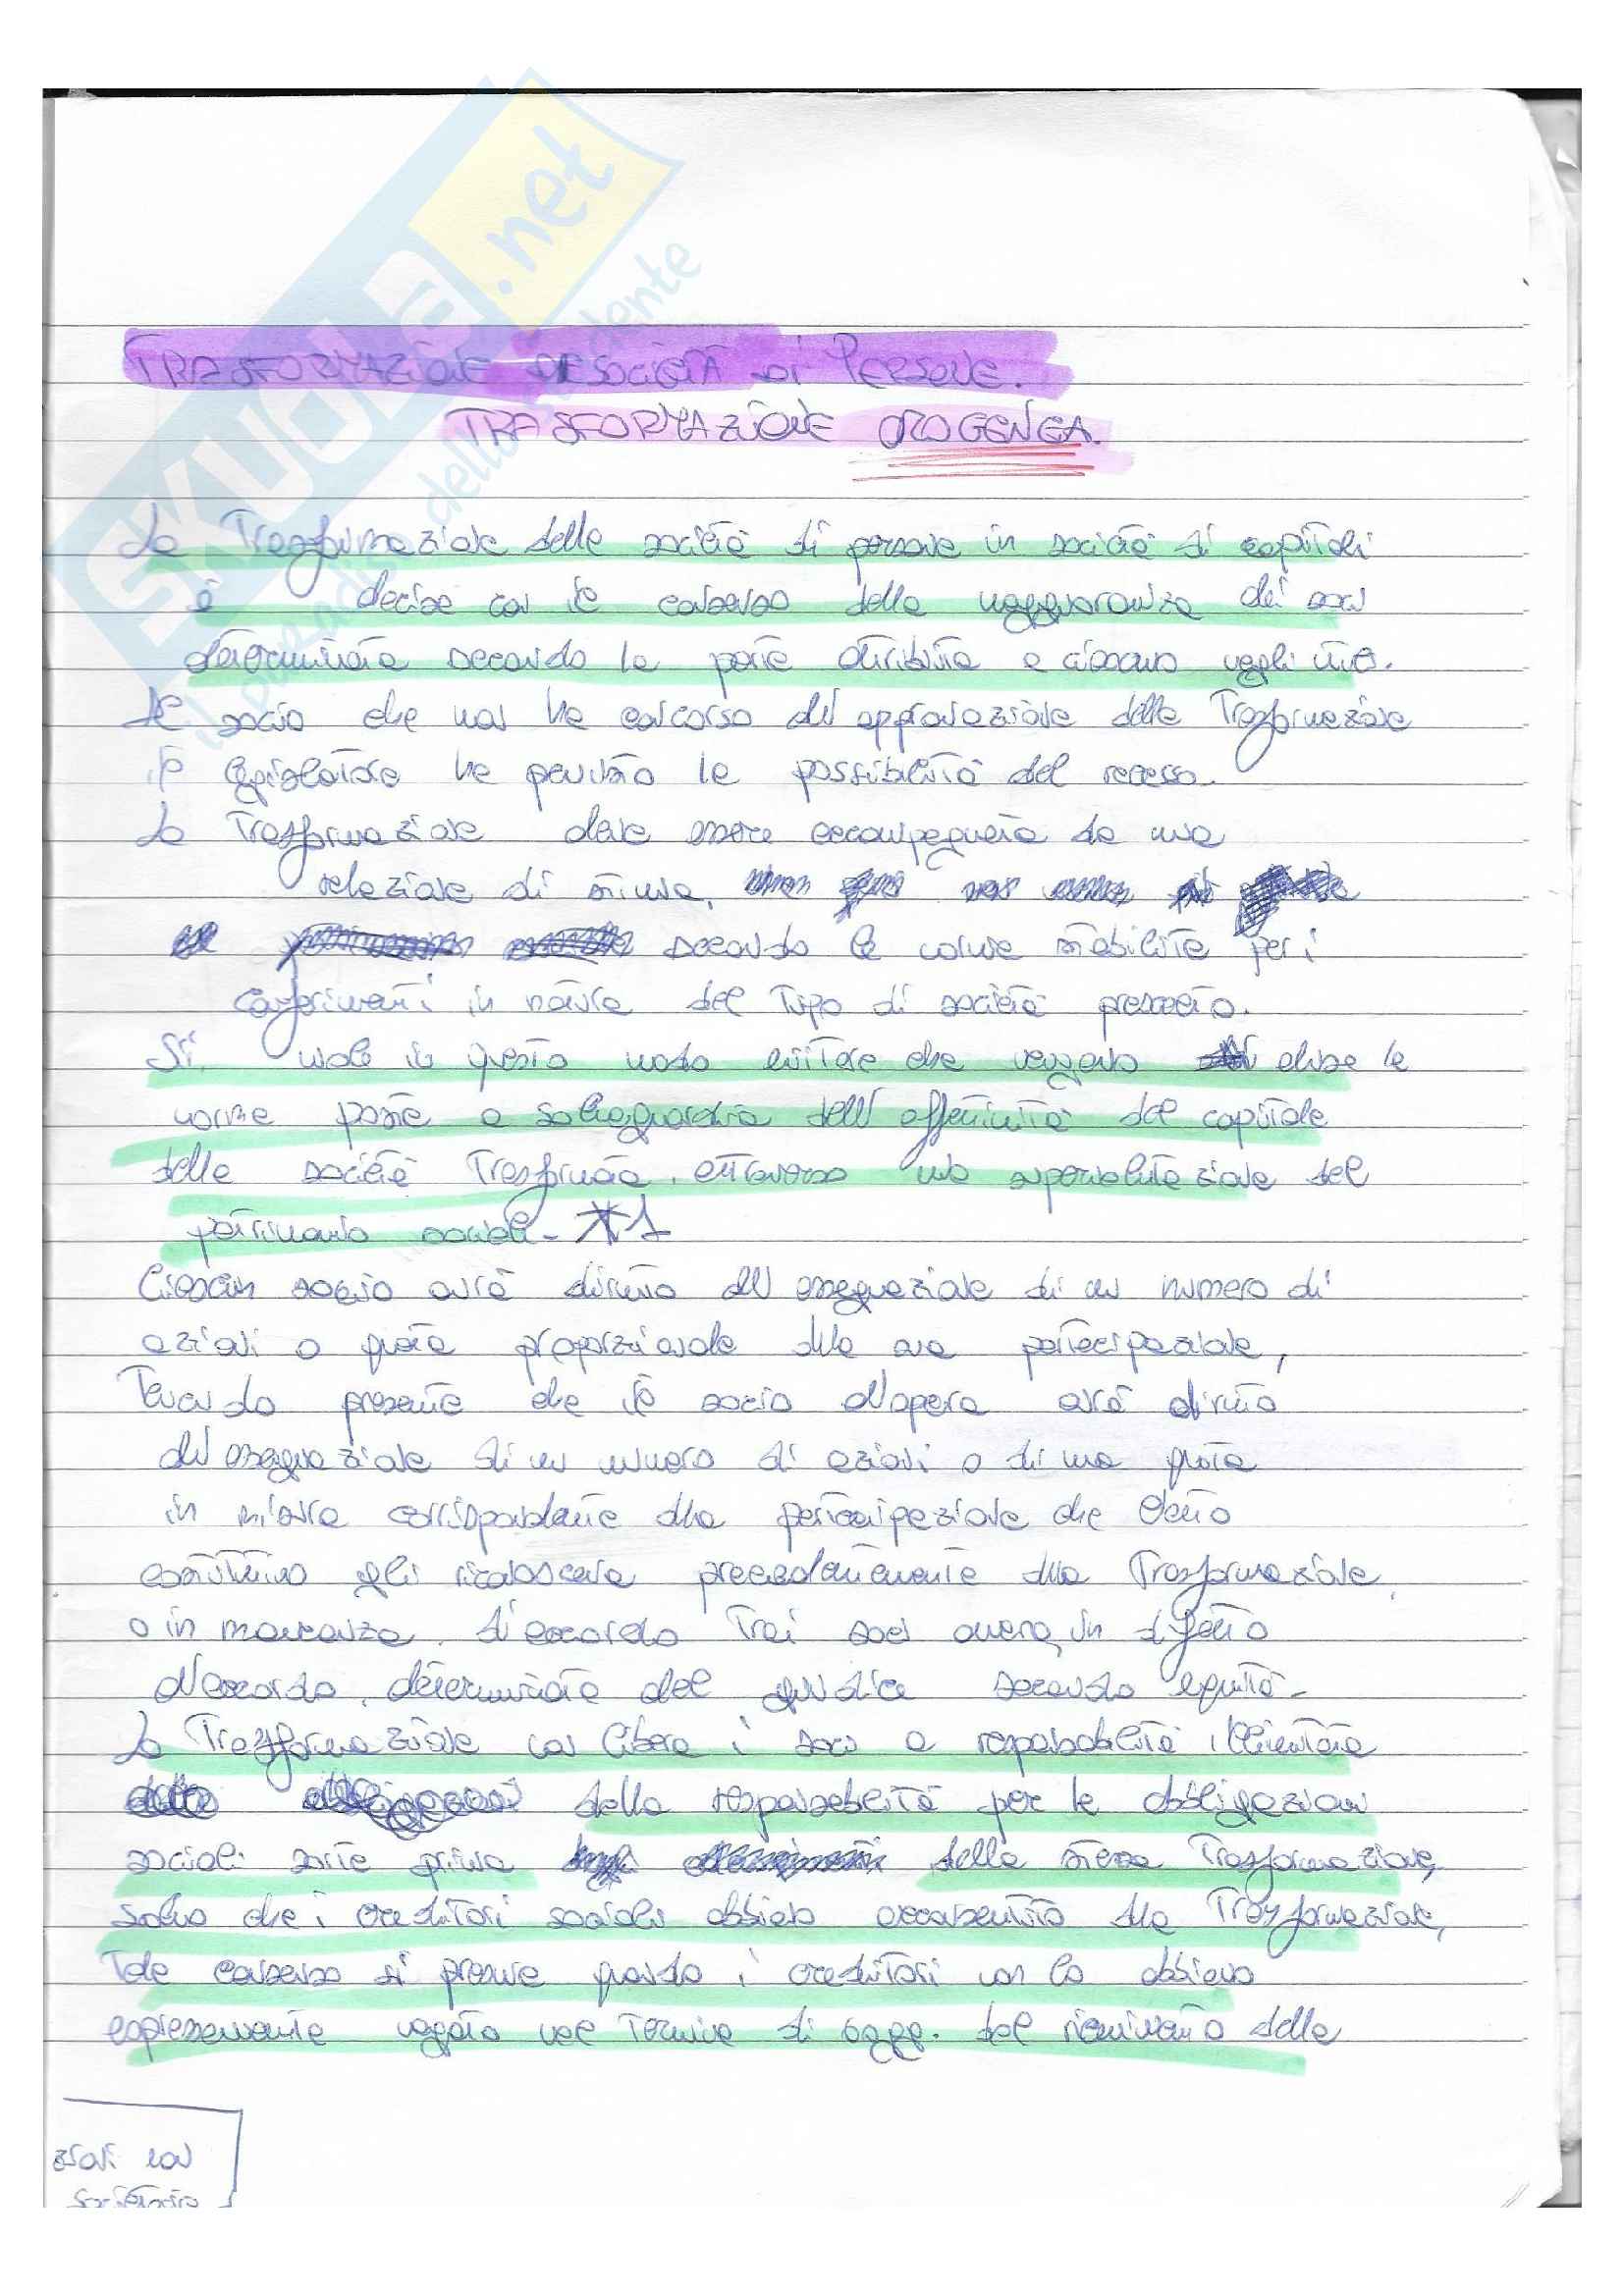 SKUOLA.net
il paradiso dello studente
TRASFORMAZIONE DI SOCIETÀ DI PERSONE.
TRASFORMAZIONE OMOGENEA.
La Trasformazione delle società di persone in società di capitali
è decisa con il consenso della maggioranza dei soci
determinata secondo la parte attribuita a ciascuno negli utili.
Al socio che non ha concorso all'approvazione della Trasformazione
il legislatore ha previsto la possibilità del recesso.
La Trasformazione deve essere accompagnata da una
relazione di stima,
secondo le norme stabilite per i
conferimenti in natura del tipo di società prescelto.
Si vuole in questo modo evitare che vengano eluse le
norme poste a salvaguardia dell'effettività del capitale
della società Trasformata, attraverso una supervalutazione del
patrimonio sociale. *1
Ciascun socio avrà diritto all'assegnazione di un numero di
azioni o quota proporzionale alla sua partecipazione,
Tenendo presente che il socio d'opera avrà diritto
all'assegnazione di un numero di azioni o di una quota
in misura corrispondente alla partecipazione che l'atto
costitutivo gli riconosceva precedentemente alla Trasformazione,
o in mancanza, d'accordo tra i soci ovvero, in difetto
d'accordo, determinata dal giudice secondo equità.
La Trasformazione non libera i soci a responsabilità illimitata
dalla responsabilità per le obbligazioni
sociali sorte prima della stessa Trasformazione,
salvo che i creditori sociali abbiano acconsentito alla Trasformazione,
Tale consenso si presume quando i creditori non lo abbiano
espressamente negato nel termine di 60gg. dal ricevimento della
zioni con